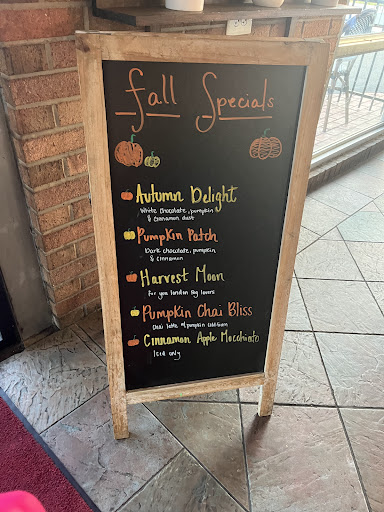 Fall Specials
Autumn Delight
White chocolate, pumpkin
& cinnamon dust
Pumpkin Patch
Dark chocolate, pumpkin
& cinnamon
Harvest Moon
for you london fog lovers
Pumpkin Chai Bliss
Chai latte w/ pumpkin cold foam
Cinnamon Apple Macchiato
Iced only